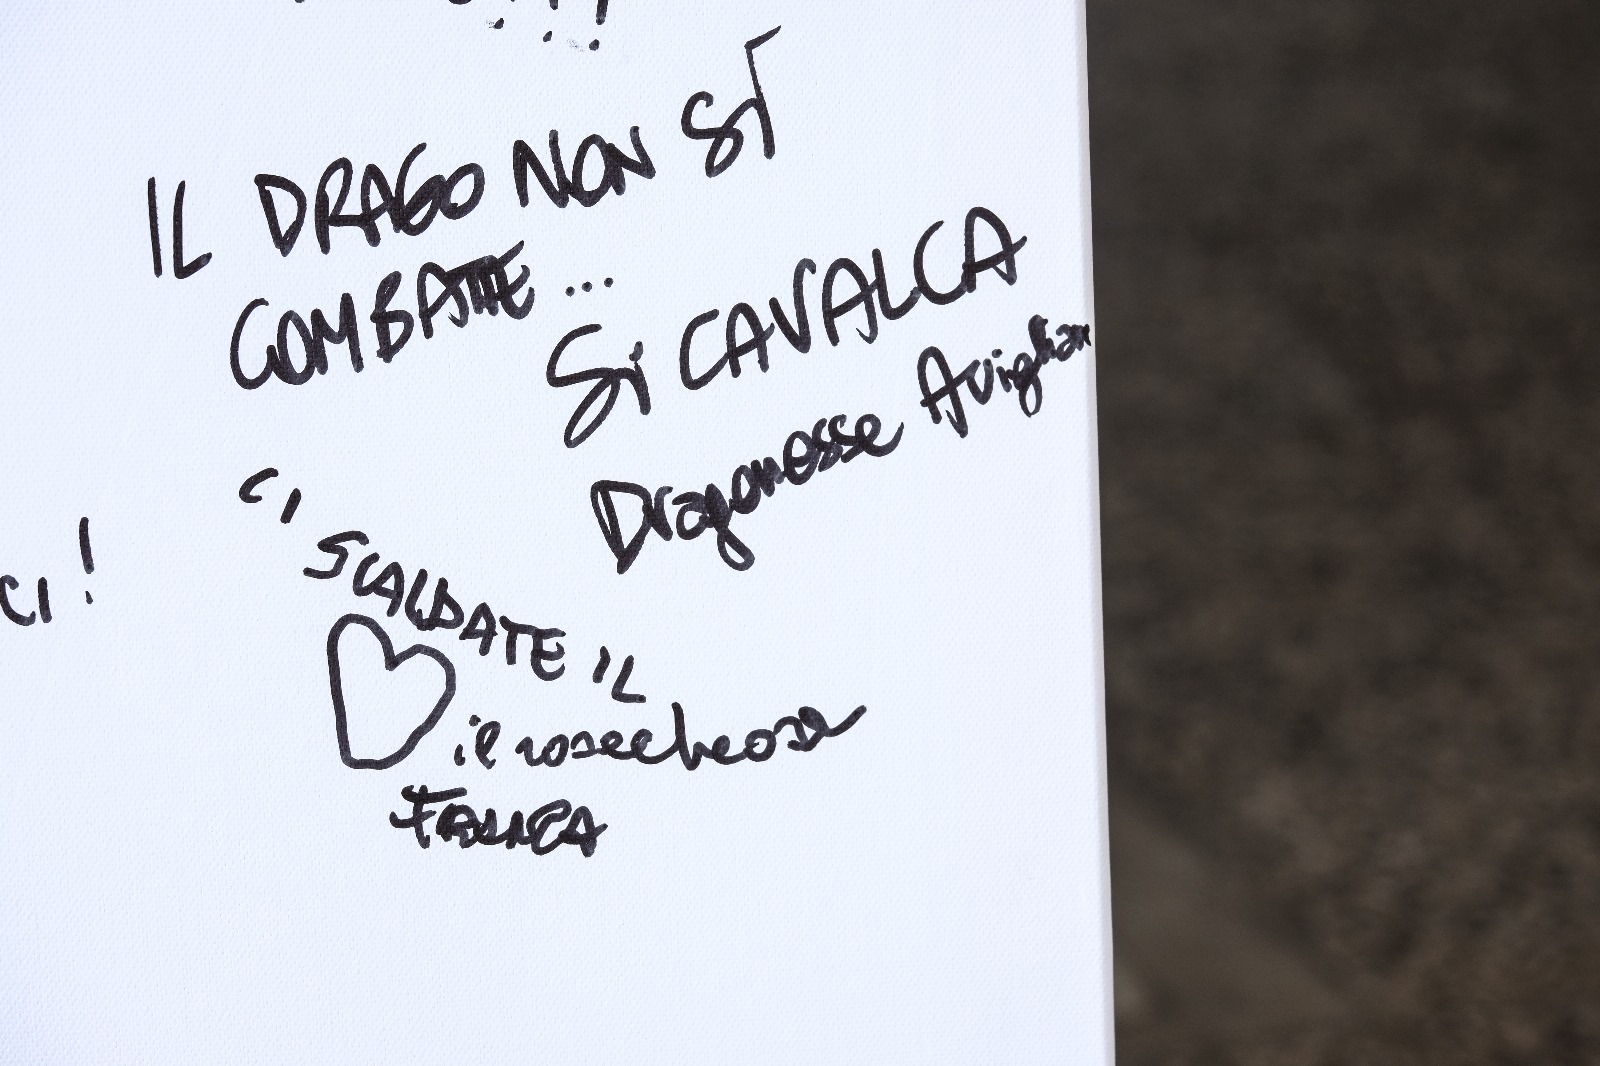 IL DRAGO NON SI
COMBATTE...
SI CAVALCA
Dragonesse Avigliane
CI!
"CI
SCALDATE IL
FRANCA